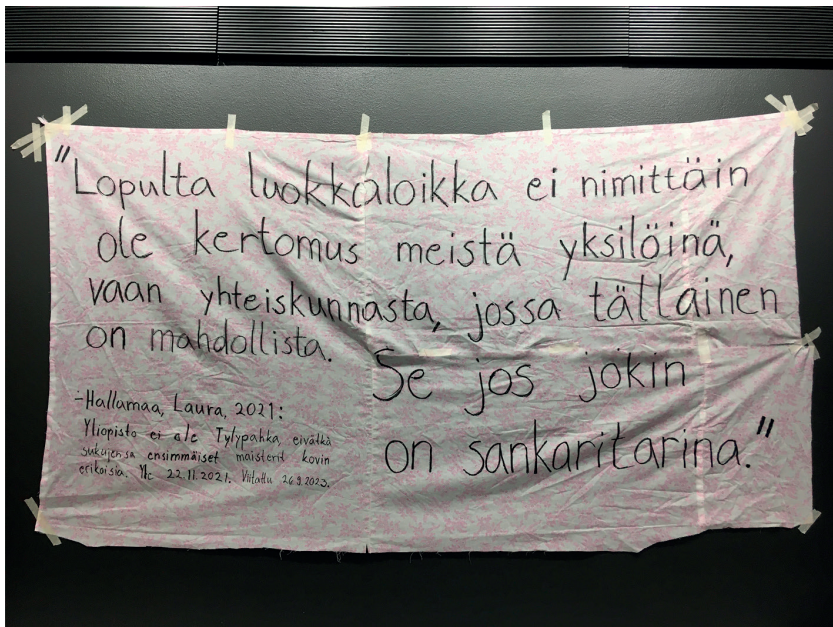 "Lopulta luokkaloikka ei nimittäin
ole kertomus meistä yksilöinä,
vaan yhteiskunnasta, jossa tällainen
on mahdollista. Se jos jokin
on sankaritarina."
-Hallamaa, Laura, 2021:
Yliopisto ei ole Tylypahka, eivätkä
sukujensa ensimmäiset maisterit kovin
erikoisia. Yle 22.11.2021. Viitattu 26.9.2023.